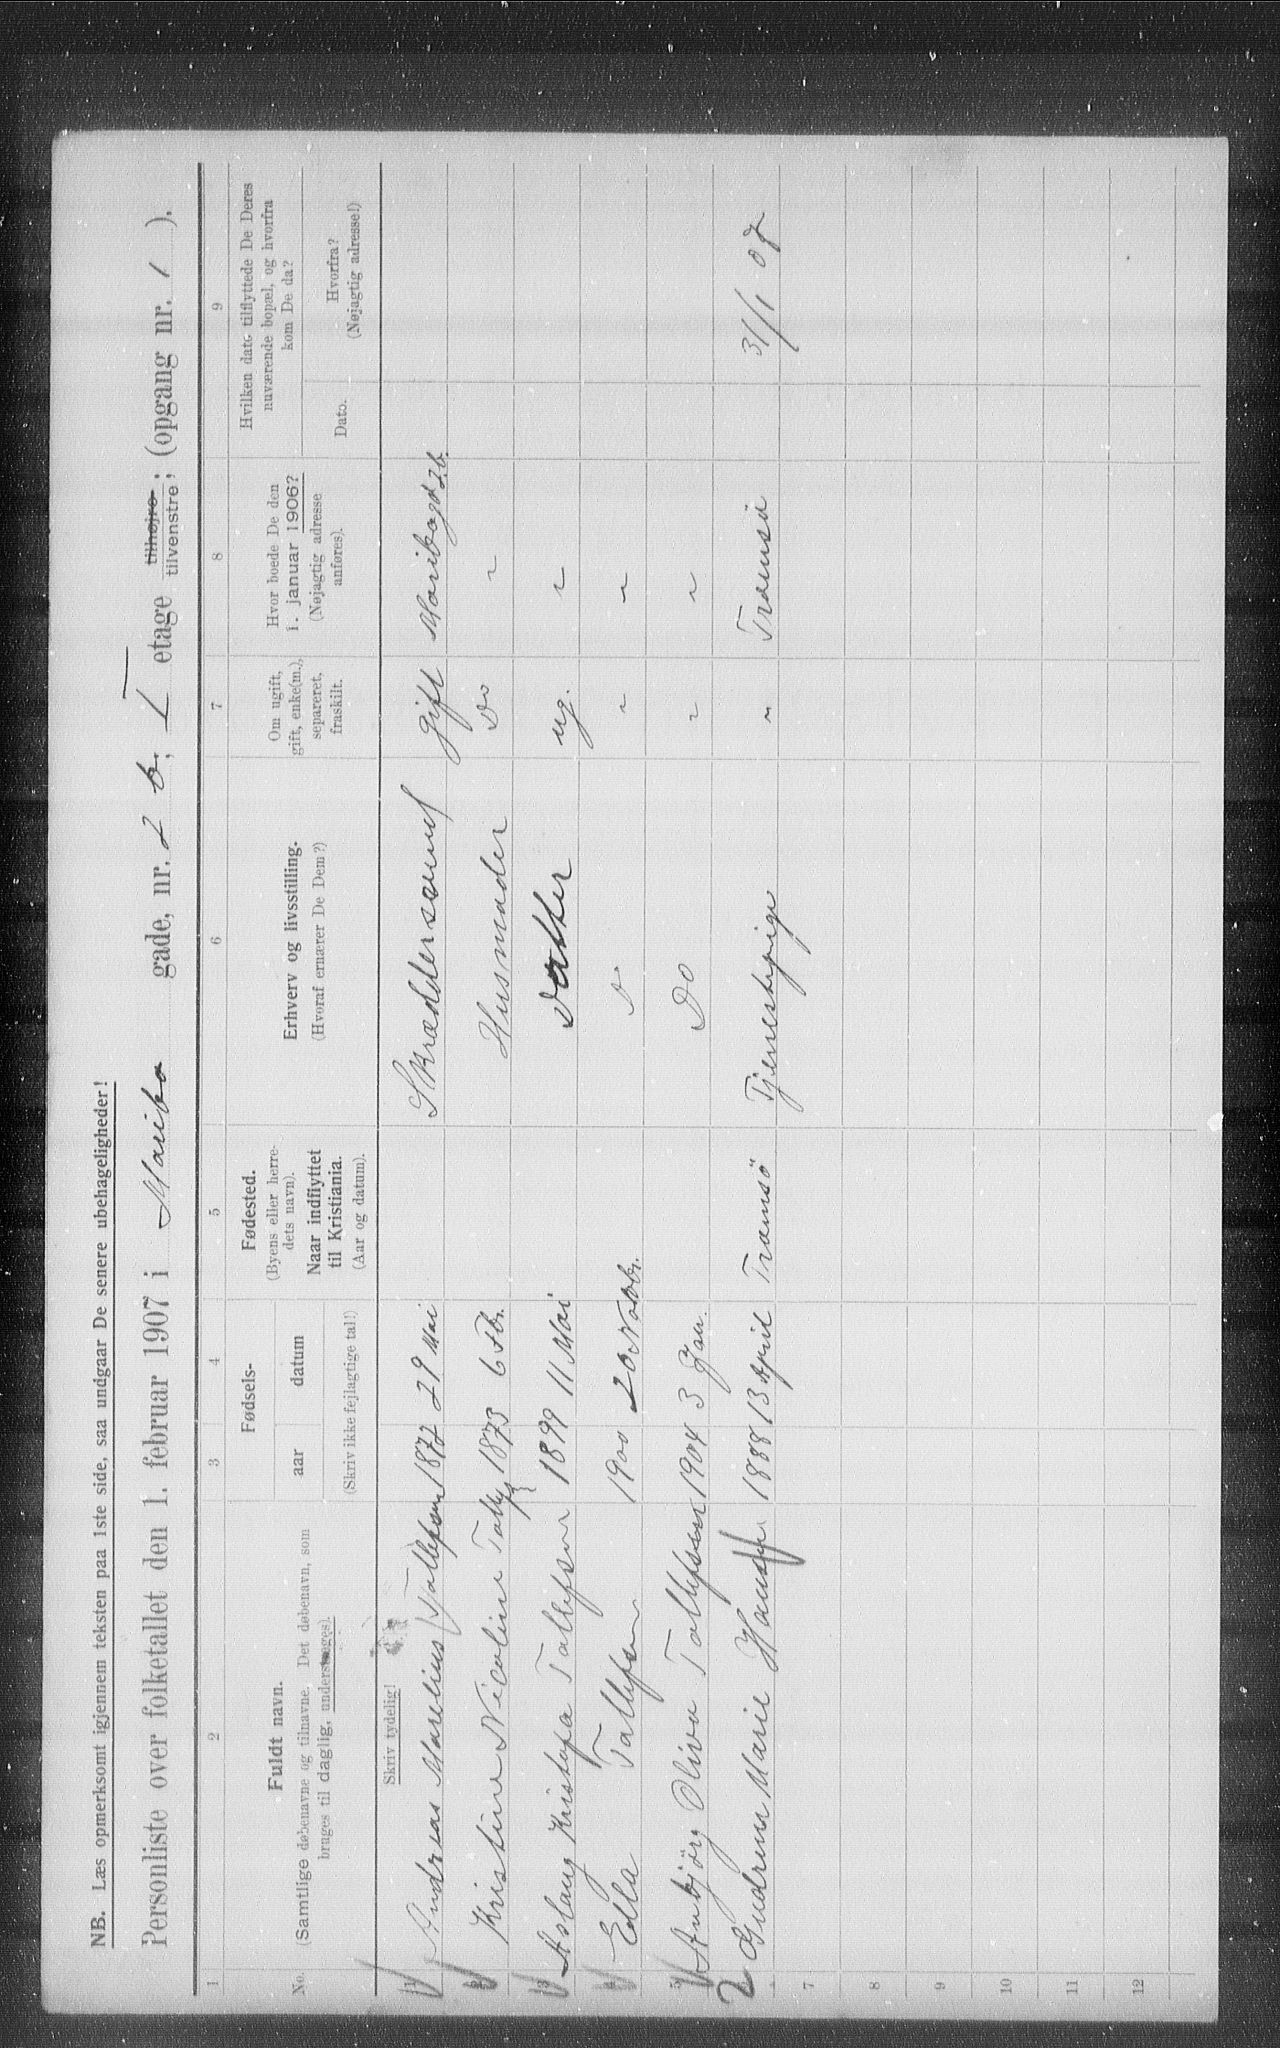 NB. Læs opmerksomt igjennem teksten paa 1ste side, saa undgaar De senere ubehageligheder!
Personliste over folketallet den 1. februar 1907 i Maribo gade, nr. 2 b; I etage tilhøjre tilvenstre; (opgang nr. 1 ).
1 2 3 4 5 6 7 8 9
No.
Fuldt navn.
(Samtlige døbenavne og tilnavne. Det døbenavn, som
bruges til daglig, understreges).
Fødsels-
aar datum
(Skriv ikke fejlagtige tal!)
Fødested.
(Byens eller herre-
dets navn).
Naar indflyttet
til Kristiania.
(Aar og datum).
Erhverv og livsstilling.
(Hvoraf ernærer De Dem?)
Om ugift,
gift, enke(m.),
separeret,
fraskilt.
Hvor boede De den
1. januar 1906?
(Nøjagtig adresse
anføres).
Hvilken dato tilflyttede De Deres
nuværende bopæl, og hvorfra
kom De da?
Dato.
Hvorfra?
(Nøjagtig adresse!)
Skriv tydelig!
1 Andreas Marelius Tollefsen 1872 29 Mai Skræddersvend gift Maribogd 2b.
2 Kristine Nicoline Tollefsen 1873 6 Fbr. Husmoder Do "
3 Aslaug Kristofa Tollefsen 1899 11 Mai Datter ug. "
4 Ella Tollefsen 1900 20 Novbr. D " "
5 Anbjørg Oliva Tollefsen 1904 3 Jan. Do " "
6 Gudrun Marie Hansen 1888 13 April Tromsö Tjenestepige " Tromsö 31/1 07
7
8
9
10
11
12